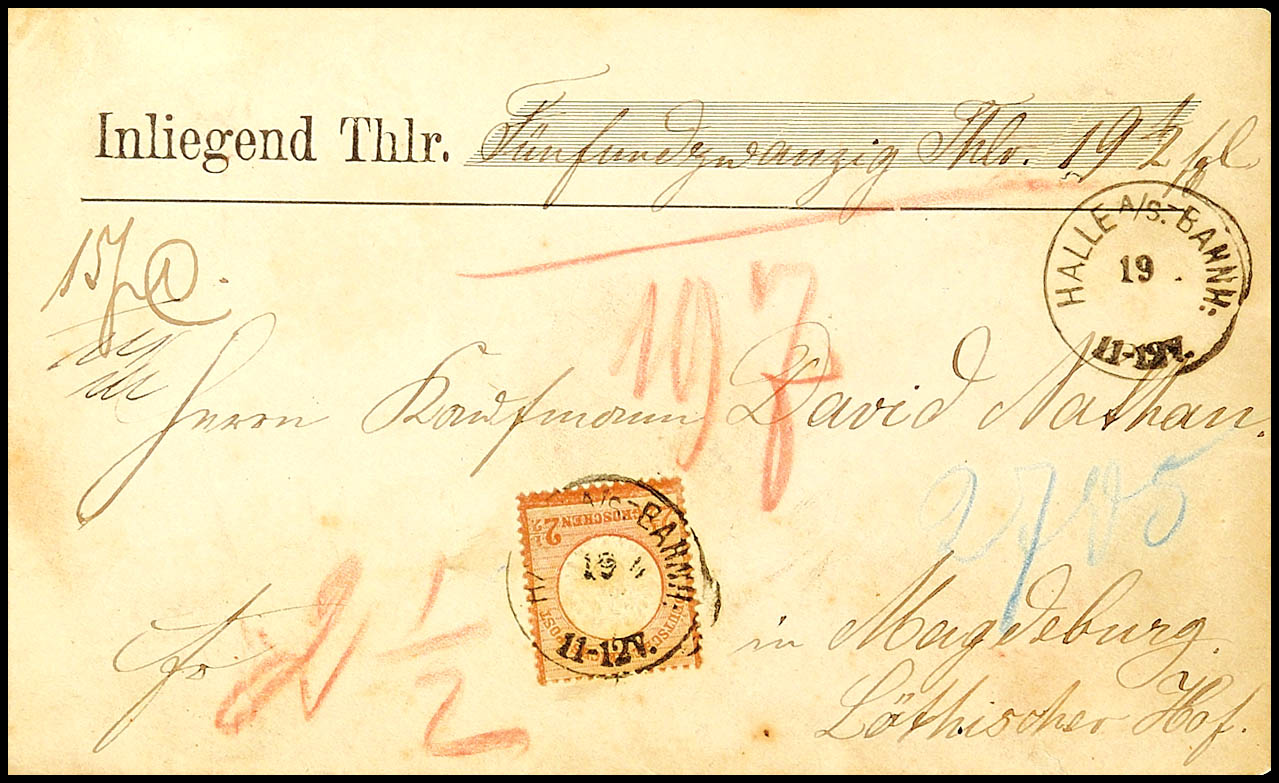 Inliegend Thlr. Fünfundzwanzig Thlr. 19 1/2
HALLE A/S.-BAHNH:
19
11-12V.
19
Herrn Kaufmann David Nathan.
2 1/2 GROSCHEN
A/S.-BAHNH:
19
11-12V.
fr. 2 1/2
in Magdeburg.
Löthischer Hof.